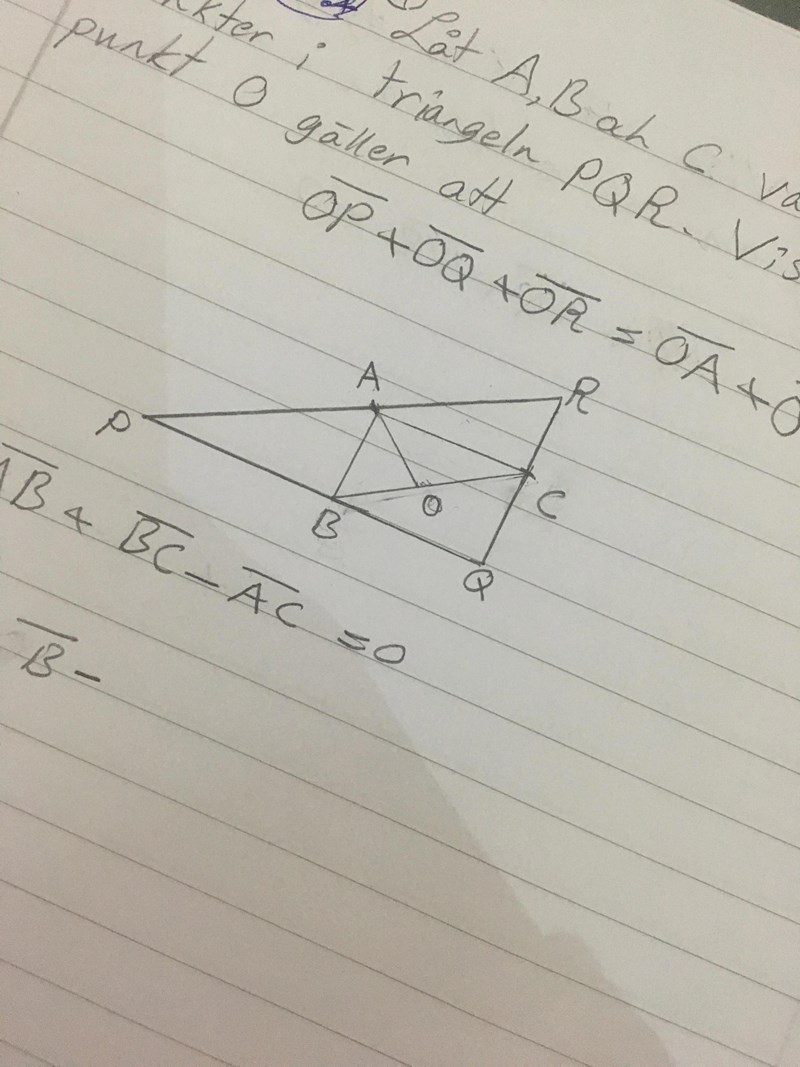 Låt A, B och C
i triangeln PQR. Vis
punkt O gäller att
OP + OQ + OR = OA +
A
R
P
C
O
B
Q
B + BC - AC = 0
B -